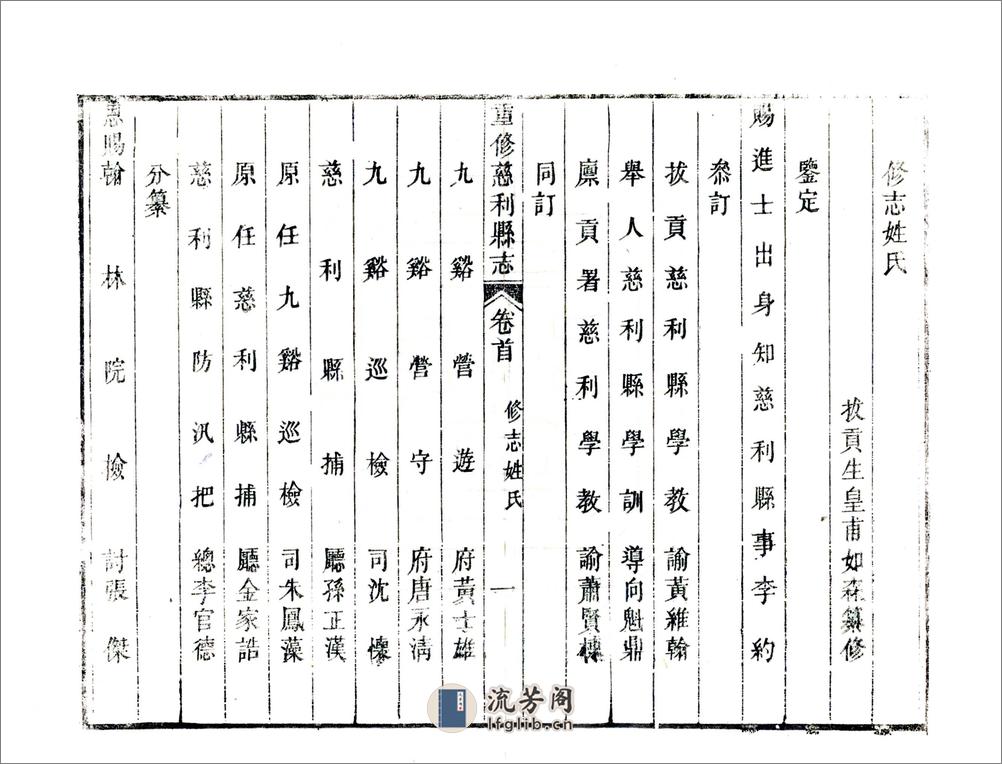 修志姓氏
拔貢生皇甫如森纂修
鑒定
賜進士出身知慈利縣事李約
叅訂
拔貢慈利縣學教諭黃維翰
舉人慈利縣學訓導向魁鼎
廩貢署慈利學教諭蕭賢樽
同訂
重修慈利縣志
卷首
修志姓氏
一
九谿營遊府黃士雄
九谿營守府唐永清
九谿巡檢司沈懷
慈利縣捕廳孫正漢
原任九谿巡檢司朱鳳藻
原任慈利縣捕廳金家誥
慈利縣防汛把總李官德
分纂
恩賜翰林院檢討張傑
流芳阁
lfglib.cn